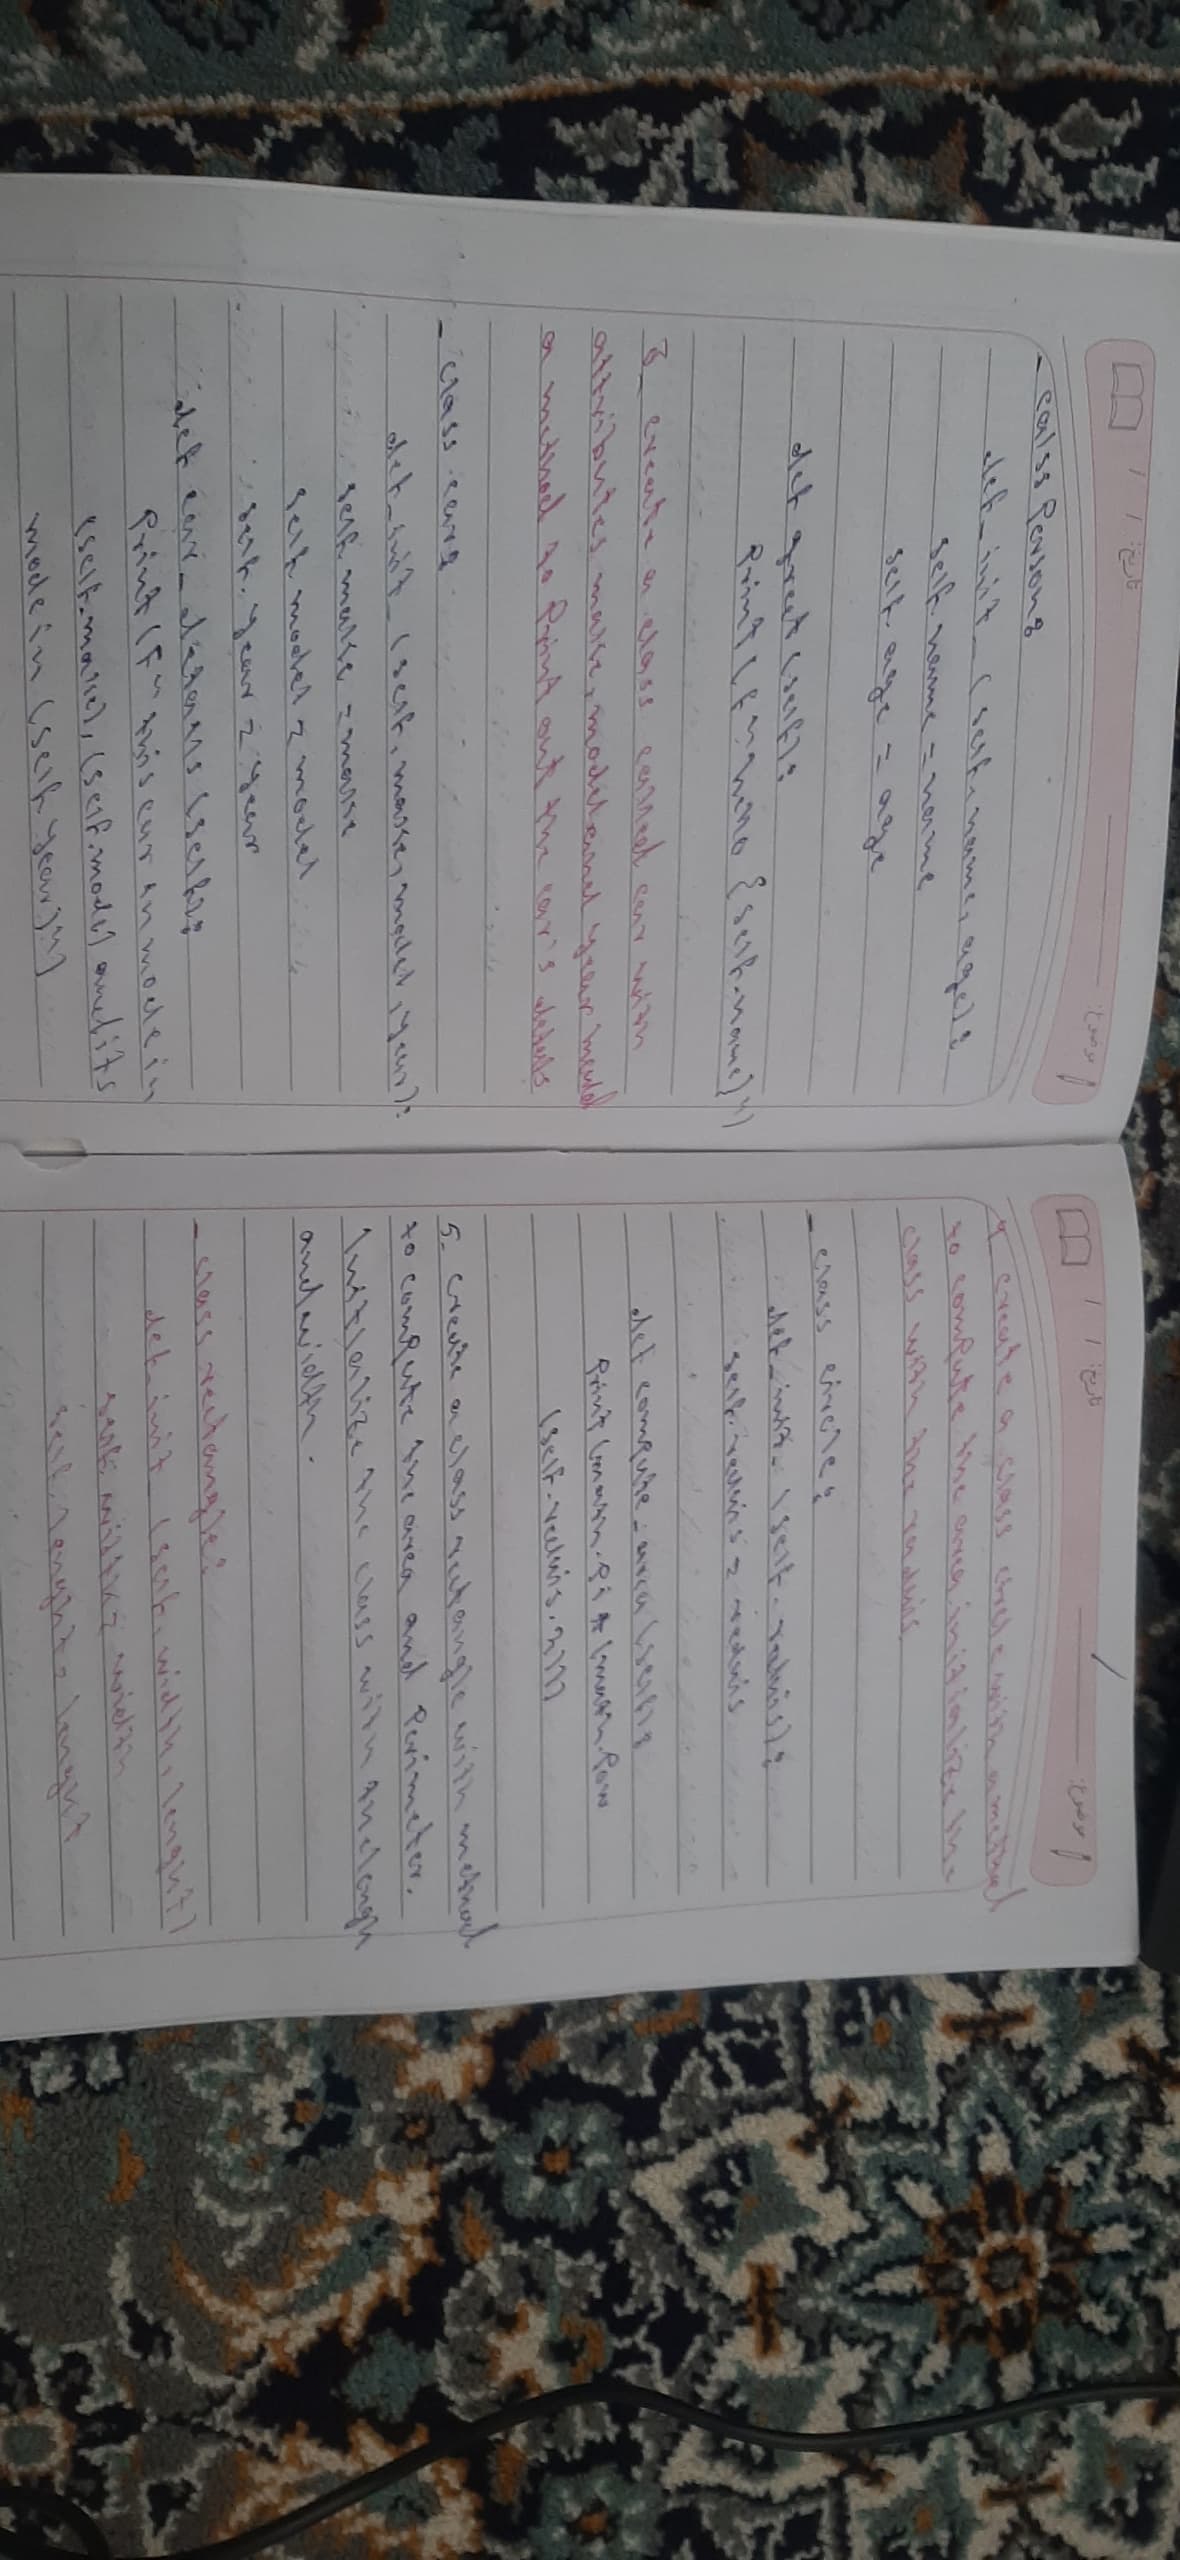 تاریخ: / /
موضوع:
- calss Person:
def_init_(self, name, age):
self.name = name
self.age = age
def greet (self):
Print(f"hello {self.name}")
3_ create a class called car with
attributes make, model and year
a method to Print out the car's details
- class car:
def_init_(self, make, model, year):
self.make = make
self.model = model
self.year = year
def car_details (self):
Print(f"this car is mode in
(self.make), (self.model) and its
mode in (self.year)")
تاریخ: / /
موضوع:
4_ creat a class circle with a method
to compute the area initialize the
class with the radius.
- class circle:
def_init_(self.radius):
self.radius = radius
def compute_area(self):
Print(math.pi * (math.Pow
(self.radius.2)))
5_ Create a class rectangle with method
to compute the area and Perimeter.
Initialize the class with the lengh
and width.
- class rectangle:
def_init_(self, width, lenght)
self.width = width
self.lenght = lenght